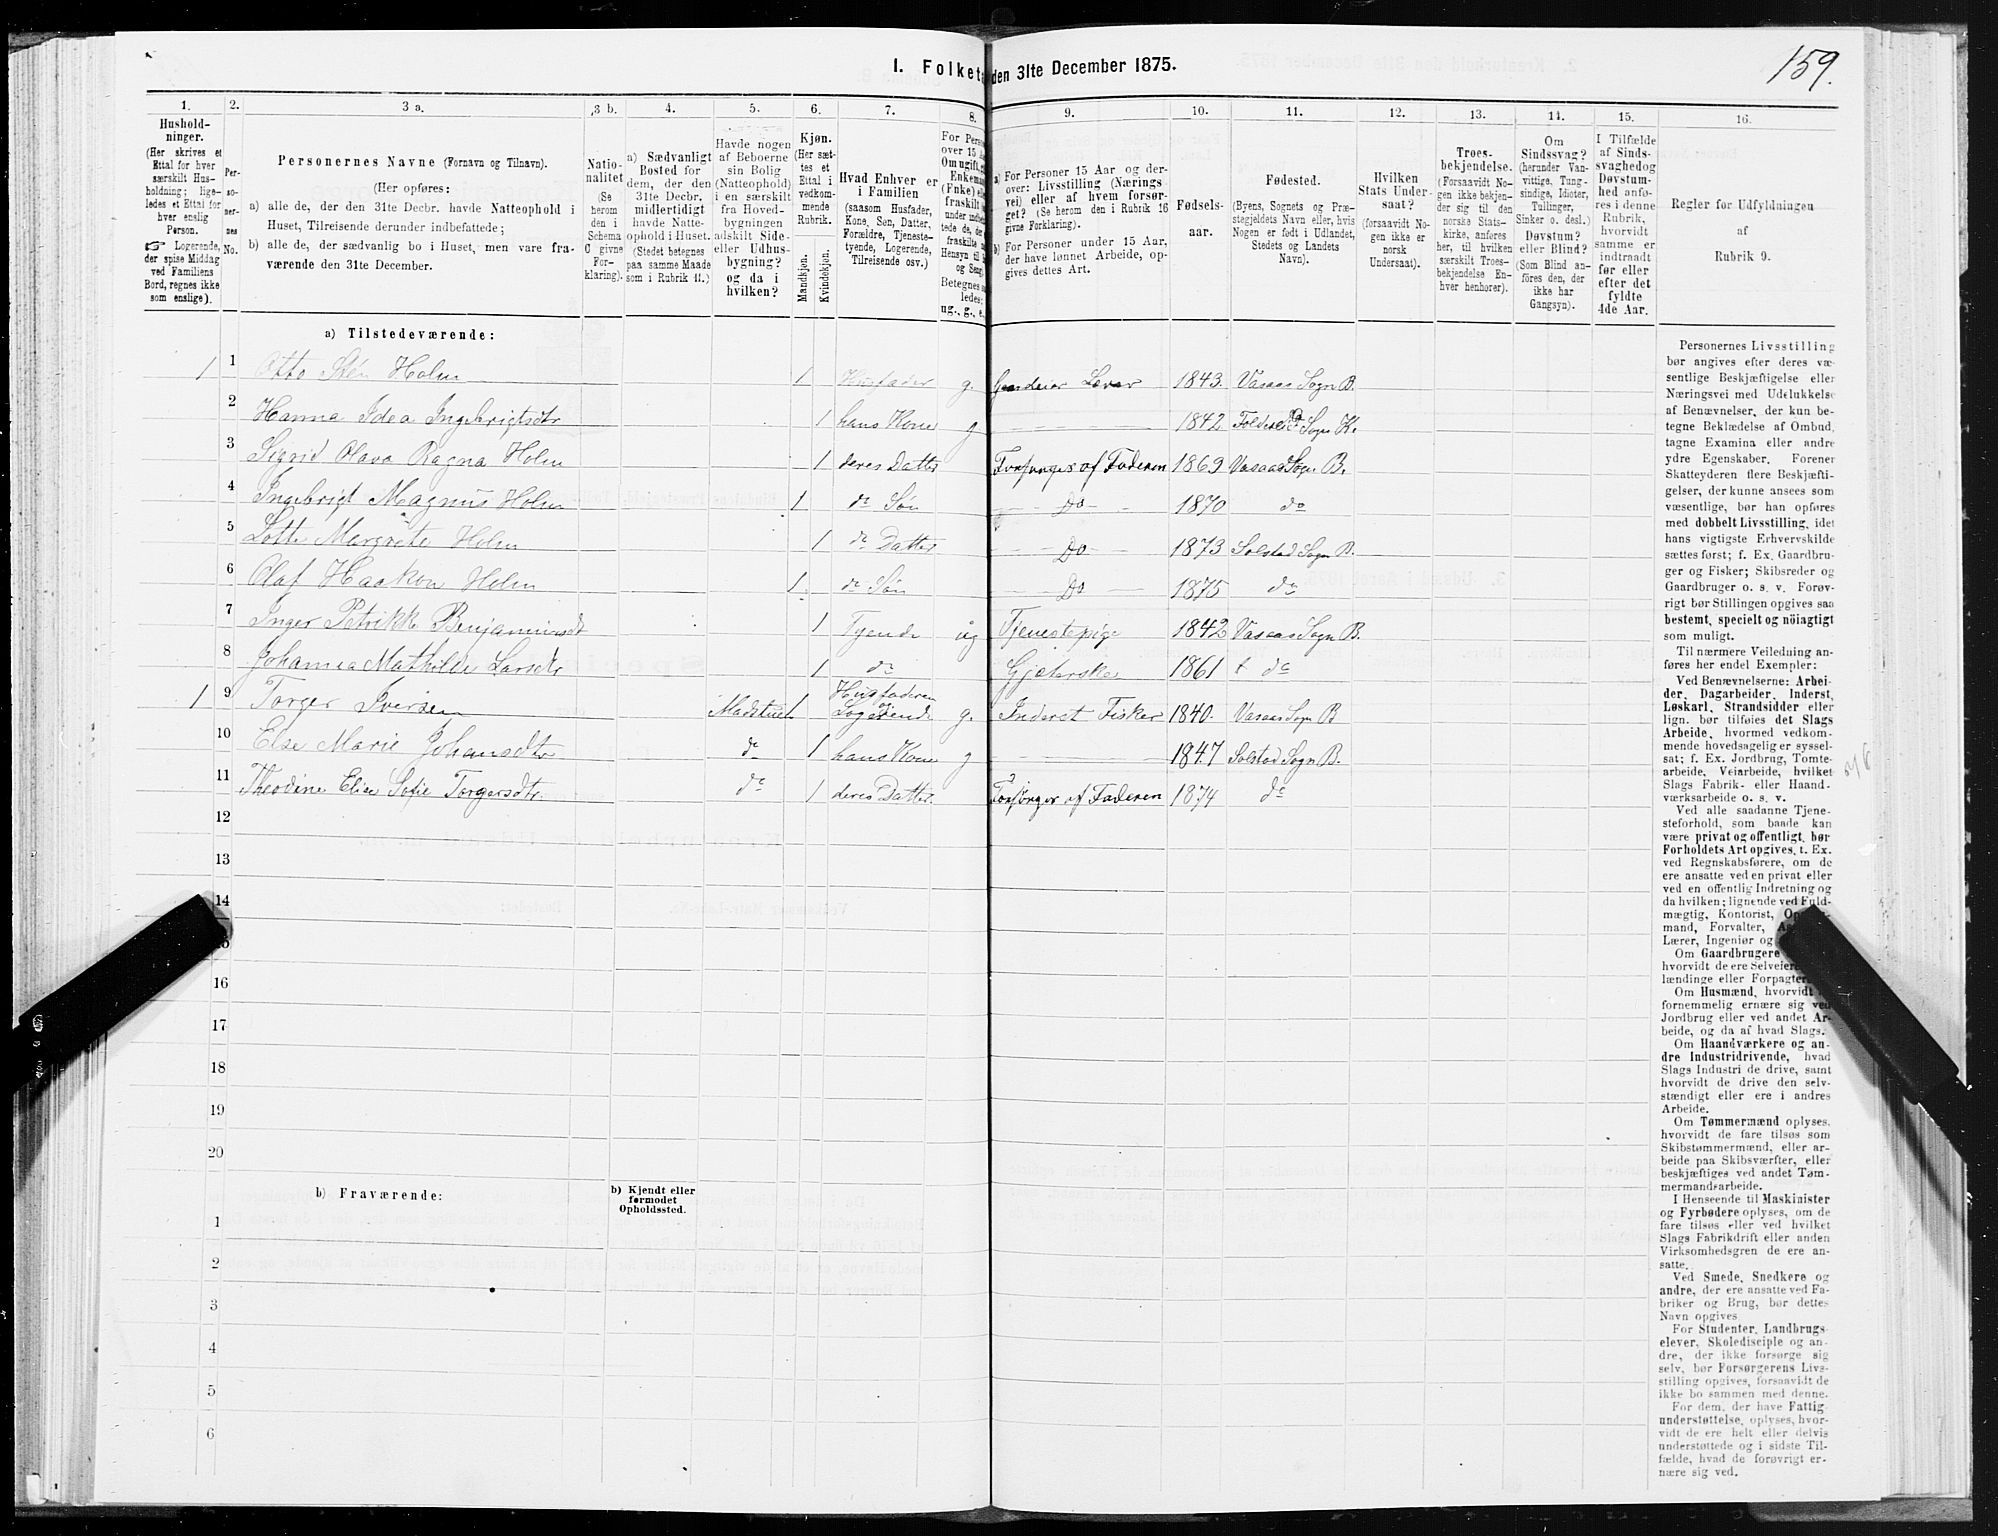 159.
I. Folketa den 31te December 1875.
1. 2. 3 a. 3 b. 4. 5. 6. 7. 8. 9. 10. 11. 12. 13. 14. 15. 16.
Hushold-
ninger.
(Her skrives et
Ettal for hver
særskilt Hus-
holdning; lige-
ledes et Ettal for
hver enslig
Person.
☞ Logerende,
der spise Middag
ved Familiens
Bord, regnes ikke
som enslige).
Per-
so-
ner-
nes
No.
Personernes Navne (Fornavn og Tilnavn).
(Her opføres:
a) alle de, der den 31te Decbr. havde Natteophold i
Huset, Tilreisende derunder indbefattede;
b) alle de, der sædvanlig bo i Huset, men vare fra-
værende den 31te December.
Natio-
nalitet
(Se
herom
den i
Schema
C. givne
For-
klaring).
a) Sædvanligt
Bosted for
dem, der den
31te Decbr.
midlertidigt
havde Natte-
ophold i Huset.
(Stedet betegnes
paa samme Maade
som i Rubrik 11.)
Havde nogen
af Beboerne
sin Bolig
(Natteophold)
i en særskilt
fra Hoved-
bygningen
adskilt Side-
eller Udhus-
bygning?
og da i
hvilken?
Kjøn.
(Her sæt-
tes et
Ettal i
vedkom-
mende
Rubrik.
Mandkjøn.
Kvindekjøn.
Hvad Enhver er
i Familien
(saasom Husfader,
Kone, Søn, Datter,
Forældre, Tjeneste-
tyende, Logerende,
Tilreisende osv.)
For Perso
over 15 A
Om ugift, g
Enkema
(Fnke) el
fraskilt
under indbe
tede de, de
fraskilte
Hensyn til B
og Seng.
Betegnes s
ledes:
ug., g., e.,
a) For Personer 15 Aar og der-
over: Livsstilling (Nærings-
vei) eller af hvem forsør-
get? (Se herom den i Rubrik 16
givne Forklaring).
b) For Personer under 15 Aar,
der have lønnet Arbeide, op-
gives dettes Art.
Fødsels-
aar.
Fødested.
(Byens, Sognets og Præ-
stegjeldets Navn eller, hvis
Nogen er født i Udlandet,
Stedets og Landets
Navn).
Hvilken
Stats Under-
saat?
(forsaavidt No-
gen ikke er
norsk
Undersaat).
Troes-
bekjendelse.
(Forsaavidt No-
gen ikke bekjen-
der sig til den
norske Stats-
kirke, anføres
her, til hvilken
særskilt Troes-
bekjendelse En-
hver henhorer).
Om
Sindssvag?
(herunder Van-
vittige, Tung-
sindige, Idioter,
Tullinger,
Sinker o. desl.)
Døvstum?
eller Blind?
(Som Blind an-
føres den, der
ikke har
Gangsyn).
I Tilfælde
af Sinds-
svaghedog
Døvstum-
hed anfø-
res i denne
Rubrik,
hvorvidt
samme er
indtraadt
før eller
efter det
fyldte
4de Aar.
Regler for Udfyldningen
af
Rubrik 9.
a) Tilstedeværende:
1 1 Otto Stén Holm 1 Husfader g. Gaardeier Lærer 1843. Vasaas Sogn B.
2 Hanna Idea Ingebrigtsdtr 1 hans Kone g 1842 Sogn K.
3 Sigrid Olava Ragna Holm 1 deres Datter Forsørges af Faderen 1869 Vasaas Sogn B.
4 Ingebrigt Magnus Holm 1 do Søn Do 1870 do
5 Lotte Margrete Holm 1 do Datter Do 1873 Solstad Sogn B.
6 Olaf Haakon Holm 1 do Søn Do 1875 do
7 Inger Petrikke Benjaminsdt 1 Tyende ug Tjenestepige 1842 Vasaas Sogn B.
8 Johanna Mathilde Larsdtr 1 do Gjeterske 1861 do
1 9 Torger Iversen Madstue 1 Husfaderen Logerende g. Inderst Fisker 1840. Vasaas Sogn B
10 Else Marie Johansdtr do 1 hans Kone g 1847 Solstad Sogn B.
11 Theodine Elise Sofie Torgersdtr. do 1 deres Datter. Forsørges af Faderen 1874 do
12
13
14
15
16
17
18
19
20
b) Fraværende:
b) Kjendt eller
formodet
Opholdssted.
1
2
3
4
5
6
Personernes Livsstilling
bør angives efter deres væ-
sentlige Beskjæftigelse eller
Næringsvei med Udelukkelse
af Benævnelser, der kun be-
tegne Beklædelse af Ombud,
tagne Examina eller andre
ydre Egenskaber. Forener
Skatteyderen flere Beskjæfti-
gelser, der kunne ansees som
væsentlige, bør han opføres
med dobbelt Livsstilling, idet
hans vigtigste Erhvervskilde
sættes først; f. Ex. Gaardbru-
ger og Fisker; Skibsreder og
Gaardbruger o. s. v. Forøv-
rigt bør Stillingen opgives saa
bestemt, specielt og nöiagtigt
som muligt.
Til nærmere Veiledning an-
føres her endel Exempler:
Ved Benævnelserne: Arbei-
der, Dagarbeider, Inderst,
Løskarl, Strandsidder eller
lign. bør tilføies det Slags
Arbeide, hvormed vedkom-
mende hovedsagelig er syssel-
sat; f. Ex. Jordbrug, Tomte-
arbeide, Veiarbeide, hvilket
Slags Fabrik- eller Haand-
værksarbeide o. s. v.
Ved alle saadanne Tjene-
steforhold, som baade kan
være privat og offentligt, bør
Forholdets Art opgives, t. Ex.
ved Regnskabsførere, om de
ere ansatte ved en privat eller
ved en offentlig Indretning og
da hvilken; lignende ved Fuld-
mægtig, Kontorist,
mand, Forvalter,
Lærer, Ingeniør og
Om Gaardbrugere
hvorvidt de ere Selveiere
lændinge eller Forpagtere
Om Husmænd, hvorvidt
fornemmelig ernære sig ved
Jordbrug eller ved andet Ar-
beide, og da af hvad Slags.
Om Haandværkere og an-
dre Industridrivende, hvad
Slags Industri de drive, samt
hvorvidt de drive den selv-
stændigt eller ere i andres
Arbeide.
Om Tømmermænd oplyses,
hvorvidt de fare tilsøs som
Skibstømmermænd, eller ar-
beide paa Skibsværfter, eller
beskjæftiges ved andet Tøm-
mermandsarbeide.
I Henseende til Maskinister
og Fyrbødere oplyses, om de
fare tilsøs eller ved hvilket
Slags Fabrikdrift eller anden
Virksomhedsgren de ere an-
satte.
Ved Smede, Snedkere og
andre, der ere ansatte ved Fa-
briker og Brug, bør dettes
Navn opgives
For Studenter, Landbrugs-
elever, Skoledisciple og an-
dre, der ikke forsørge sig
selv, bør Forsørgerens Livs-
stilling opgives, forsaavidt de
ikke bo sammen med denne.
For dem, der have Fattig-
understøttelse, oplyses, hvor-
vidt de ere helt eller delvis
understøttede og i sidste Til-
fælde, hvad de forøvrigt er-
nære sig ved.